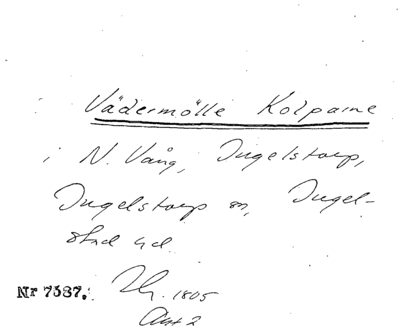 Vädermölle Kolparne
i N. Vång, Ingelstorp,
Ingelstorp sn, Ingel-
stad hd.
Nr 7587. 1805
Akt 2